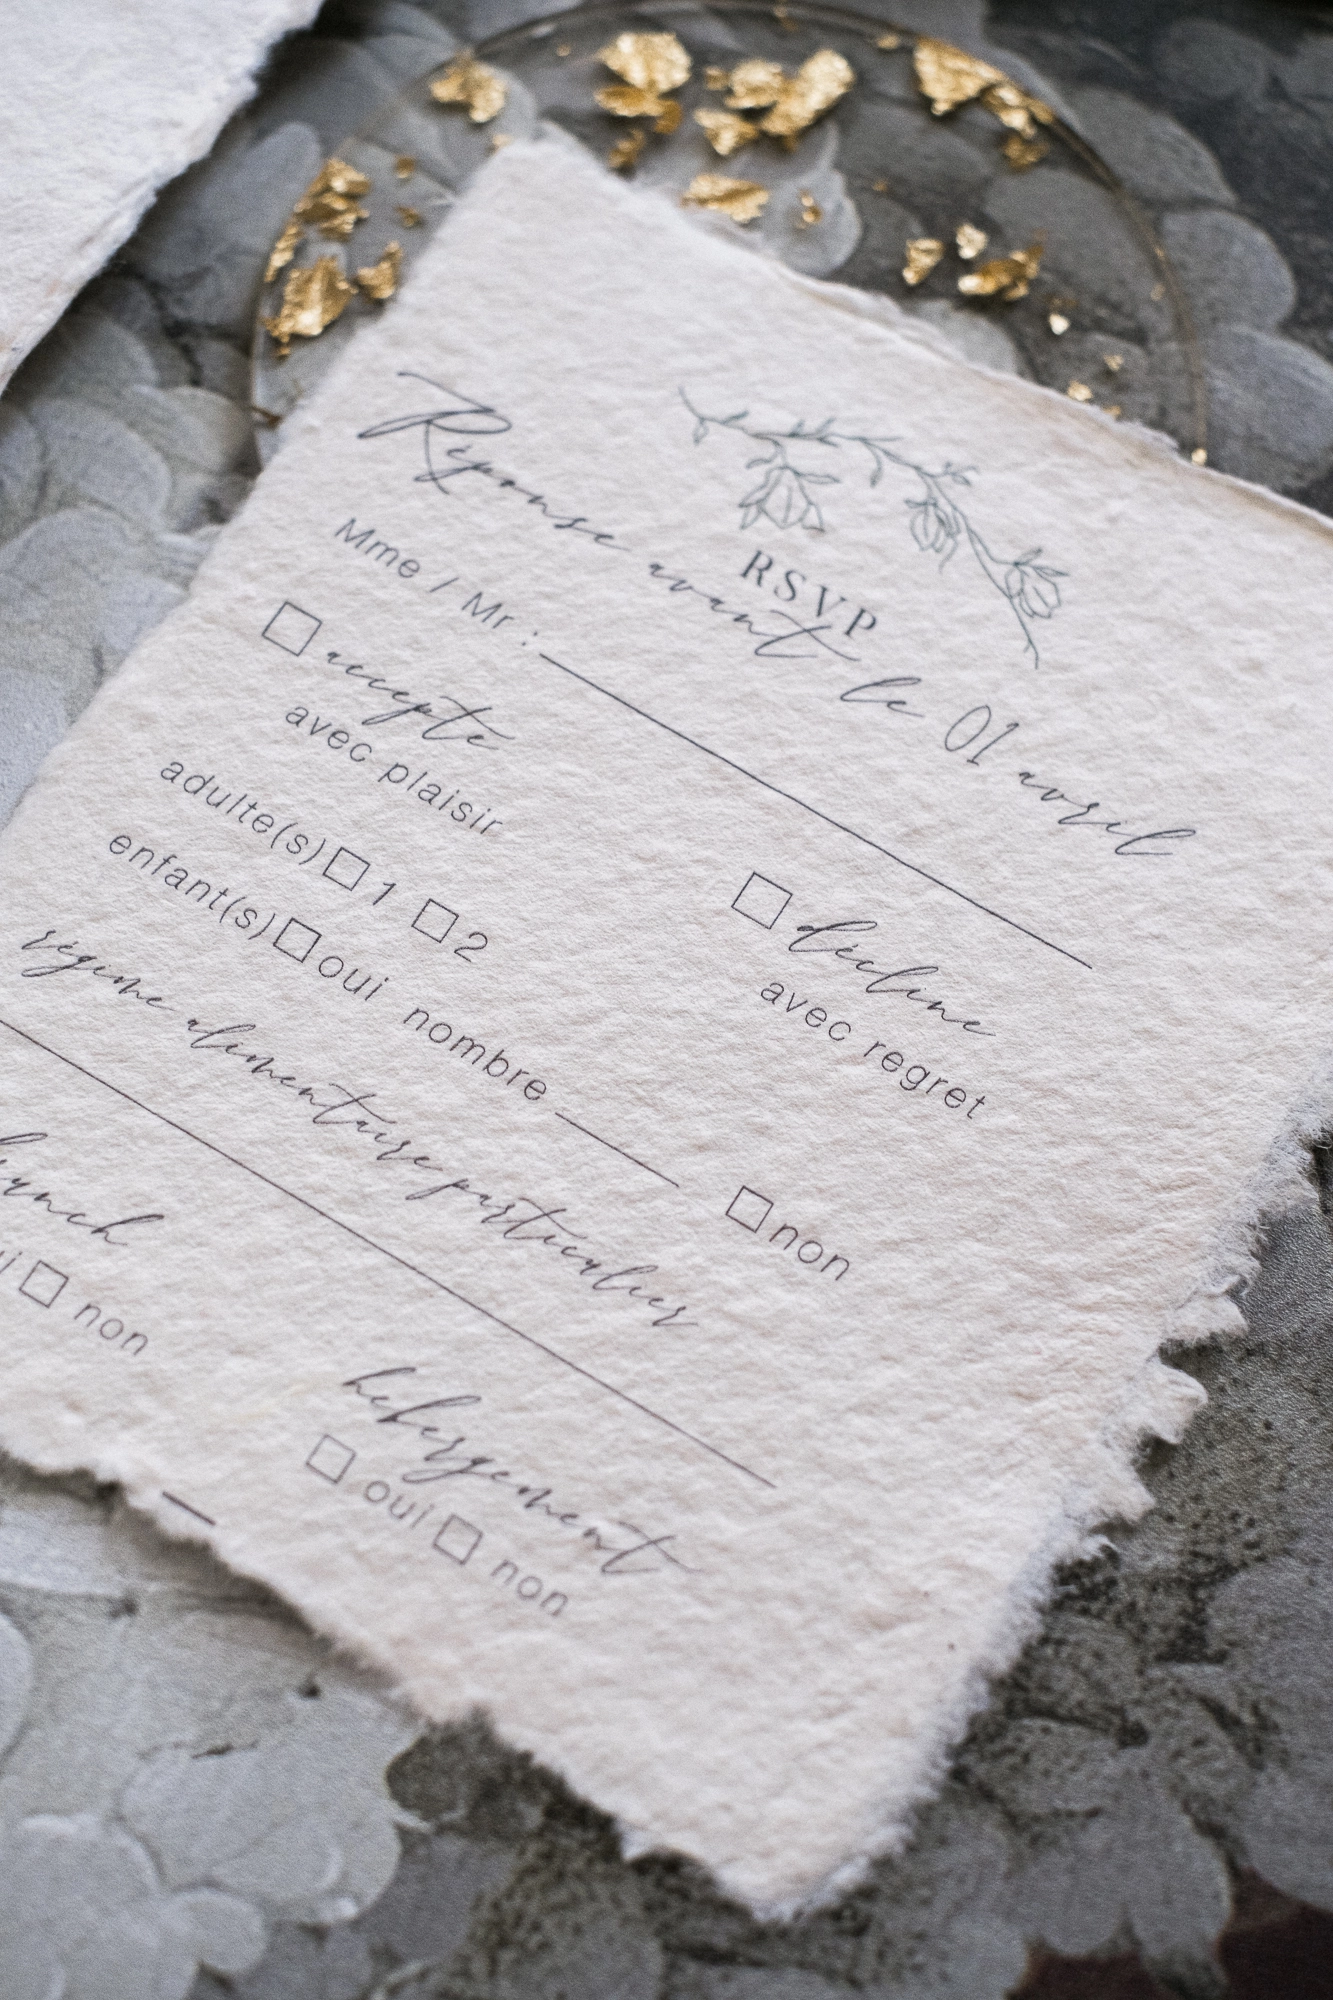 RSVP
Réponse avant le 01 avril
Mme / Mr :
accepte
avec plaisir
décline
avec regret
adulte(s) 1 2
enfant(s) oui nombre non
régime alimentaire particulier
brunch
oui non
hébergement
oui non